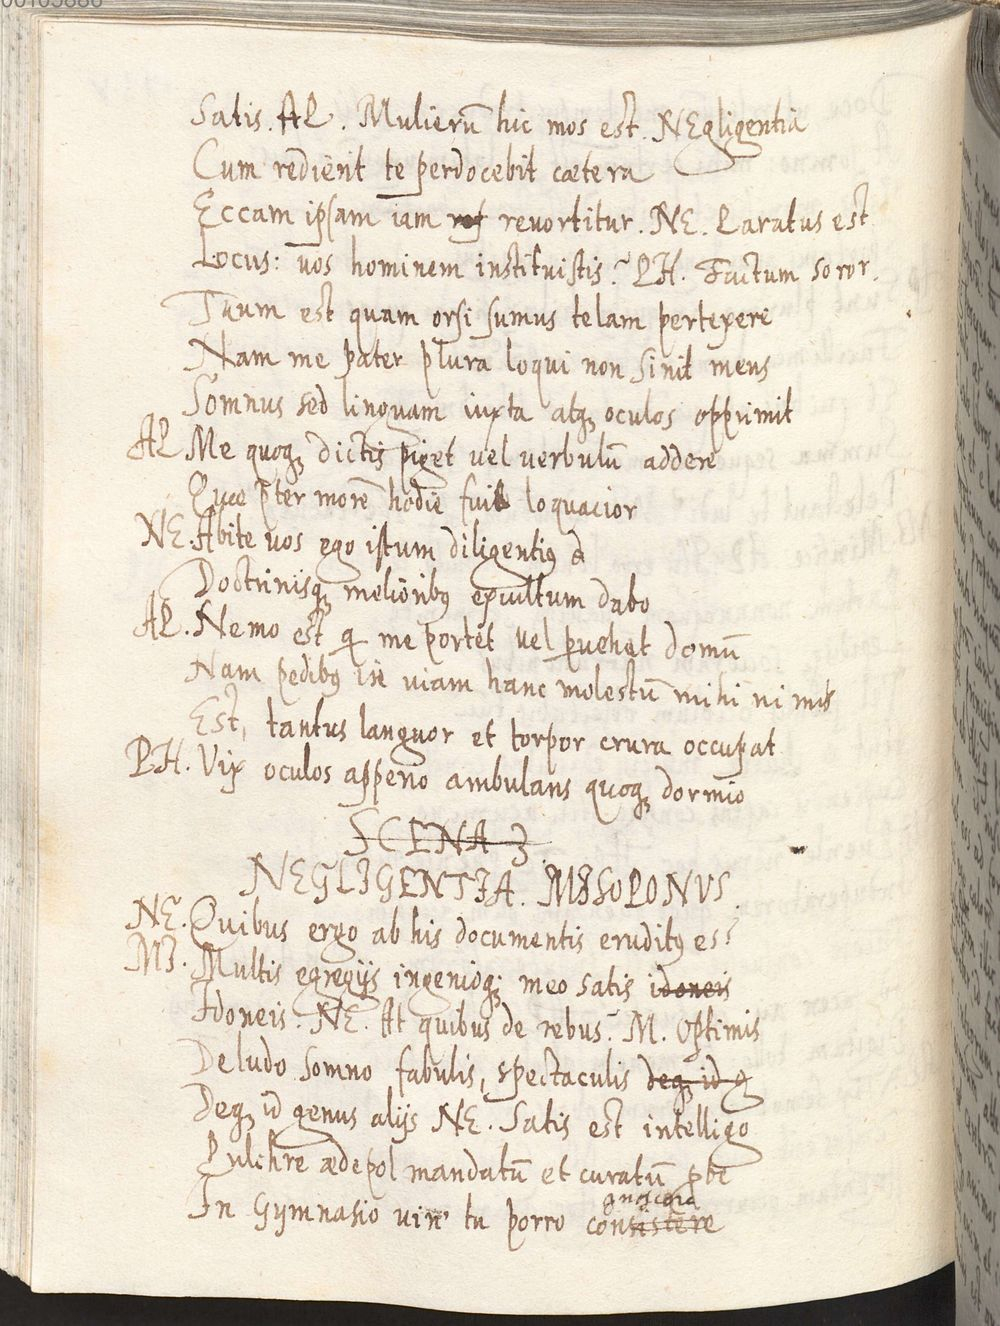 00105886
Satis. AL. Mulierū hic mos est. NEgligentia
Cum redierit te perdocebit cætera
Eccam ipsam iam reuortitur. NE. Paratus est
Locus: uos hominem instituistis? PH. Factum soror.
Tuum est quam orsi sumus telam pertexere
Nam me pater plura loqui non sinit mens
Somnus sed linguam iuxta atq; oculos opprimit
AL. Me quoq; dictis piget uel uerbulū addere
Quæ p̄ter morē hodie fui loquacior
NE. Abite uos ego istum diligentiꝰ a
Doctrinisq; melioribꝰ excultum dabo
AL. Nemo est q̄ me portet uel ꝑuehat domū
Nam pedibꝰ ire uiam hanc molestū mihi nimis
Est, tantus languor et torpor crura occupat
PH. Vix oculos aperio ambulans quoq; dormio
SCENA 3
NEGLIGENTIA. MISOPONUS.
NE. Quibus ergo ab his documentis eruditꝰ es?
MI. Multis egregijs ingenioq; meo satis idoneis
Idoneis. NE. At quibus de rebus? M. Optimis
De ludo somno fabulis, spectaculis deq; id g
Deq; id genus alijs NE. Satis est intelligo
Pulchre ædepol mandatū et curatū ꝓbe
In Gymnasio uin' tu porro consistere